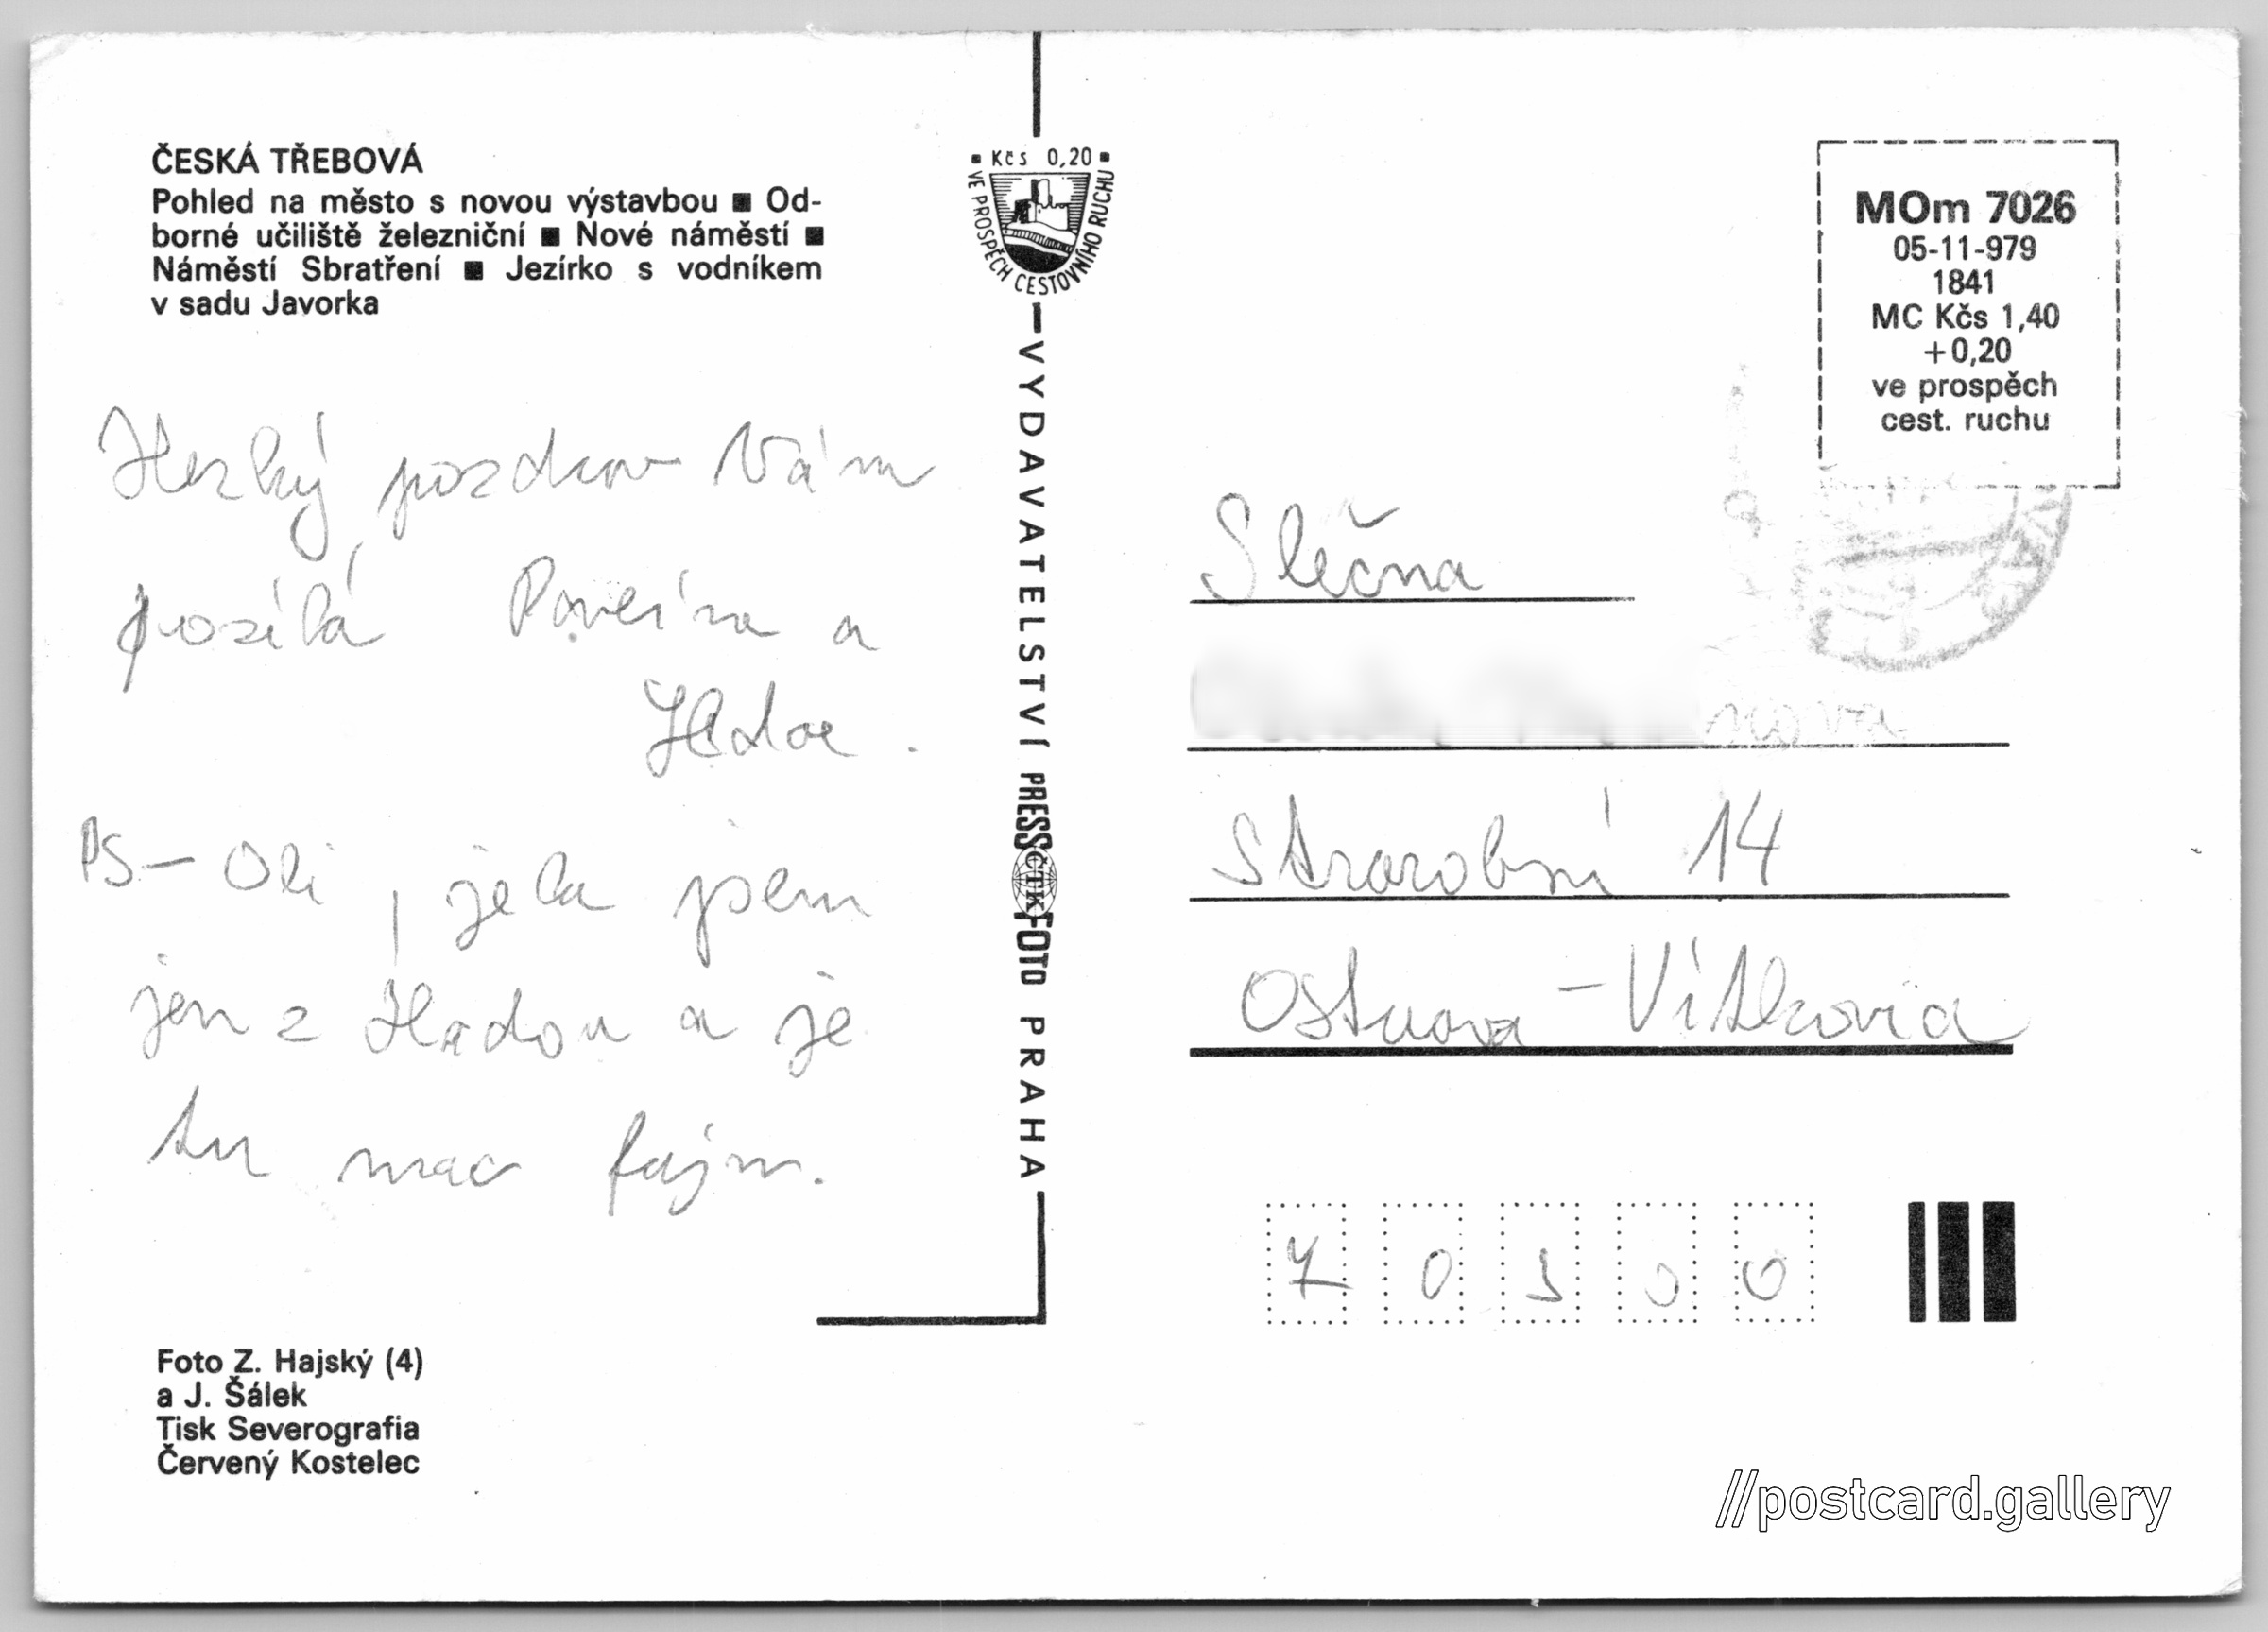 ČESKÁ TŘEBOVÁ
Pohled na město s novou výstavbou ■ Od-
borné učiliště železniční ■ Nové náměstí ■
Náměstí Sbratření ■ Jezírko s vodníkem
v sadu Javorka
Hezký pozdrav Vám
posílá a
PS - Oli, jela jsem
jen z a je
tu moc fajn.
Foto Z. Hajský (4)
a J. Šálek
Tisk Severografia
Červený Kostelec
Kčs 0,20
VE PROSPĚCH CESTOVNÍHO RUCHU
VYDAVATELSTVÍ PRESSFOTO PRAHA
ČTK
MOm 7026
05-11-979
1841
MC Kčs 1,40
+0,20
ve prospěch
cest. ruchu
Slečna
14
Ostrava - Vítkovice
//postcard.gallery